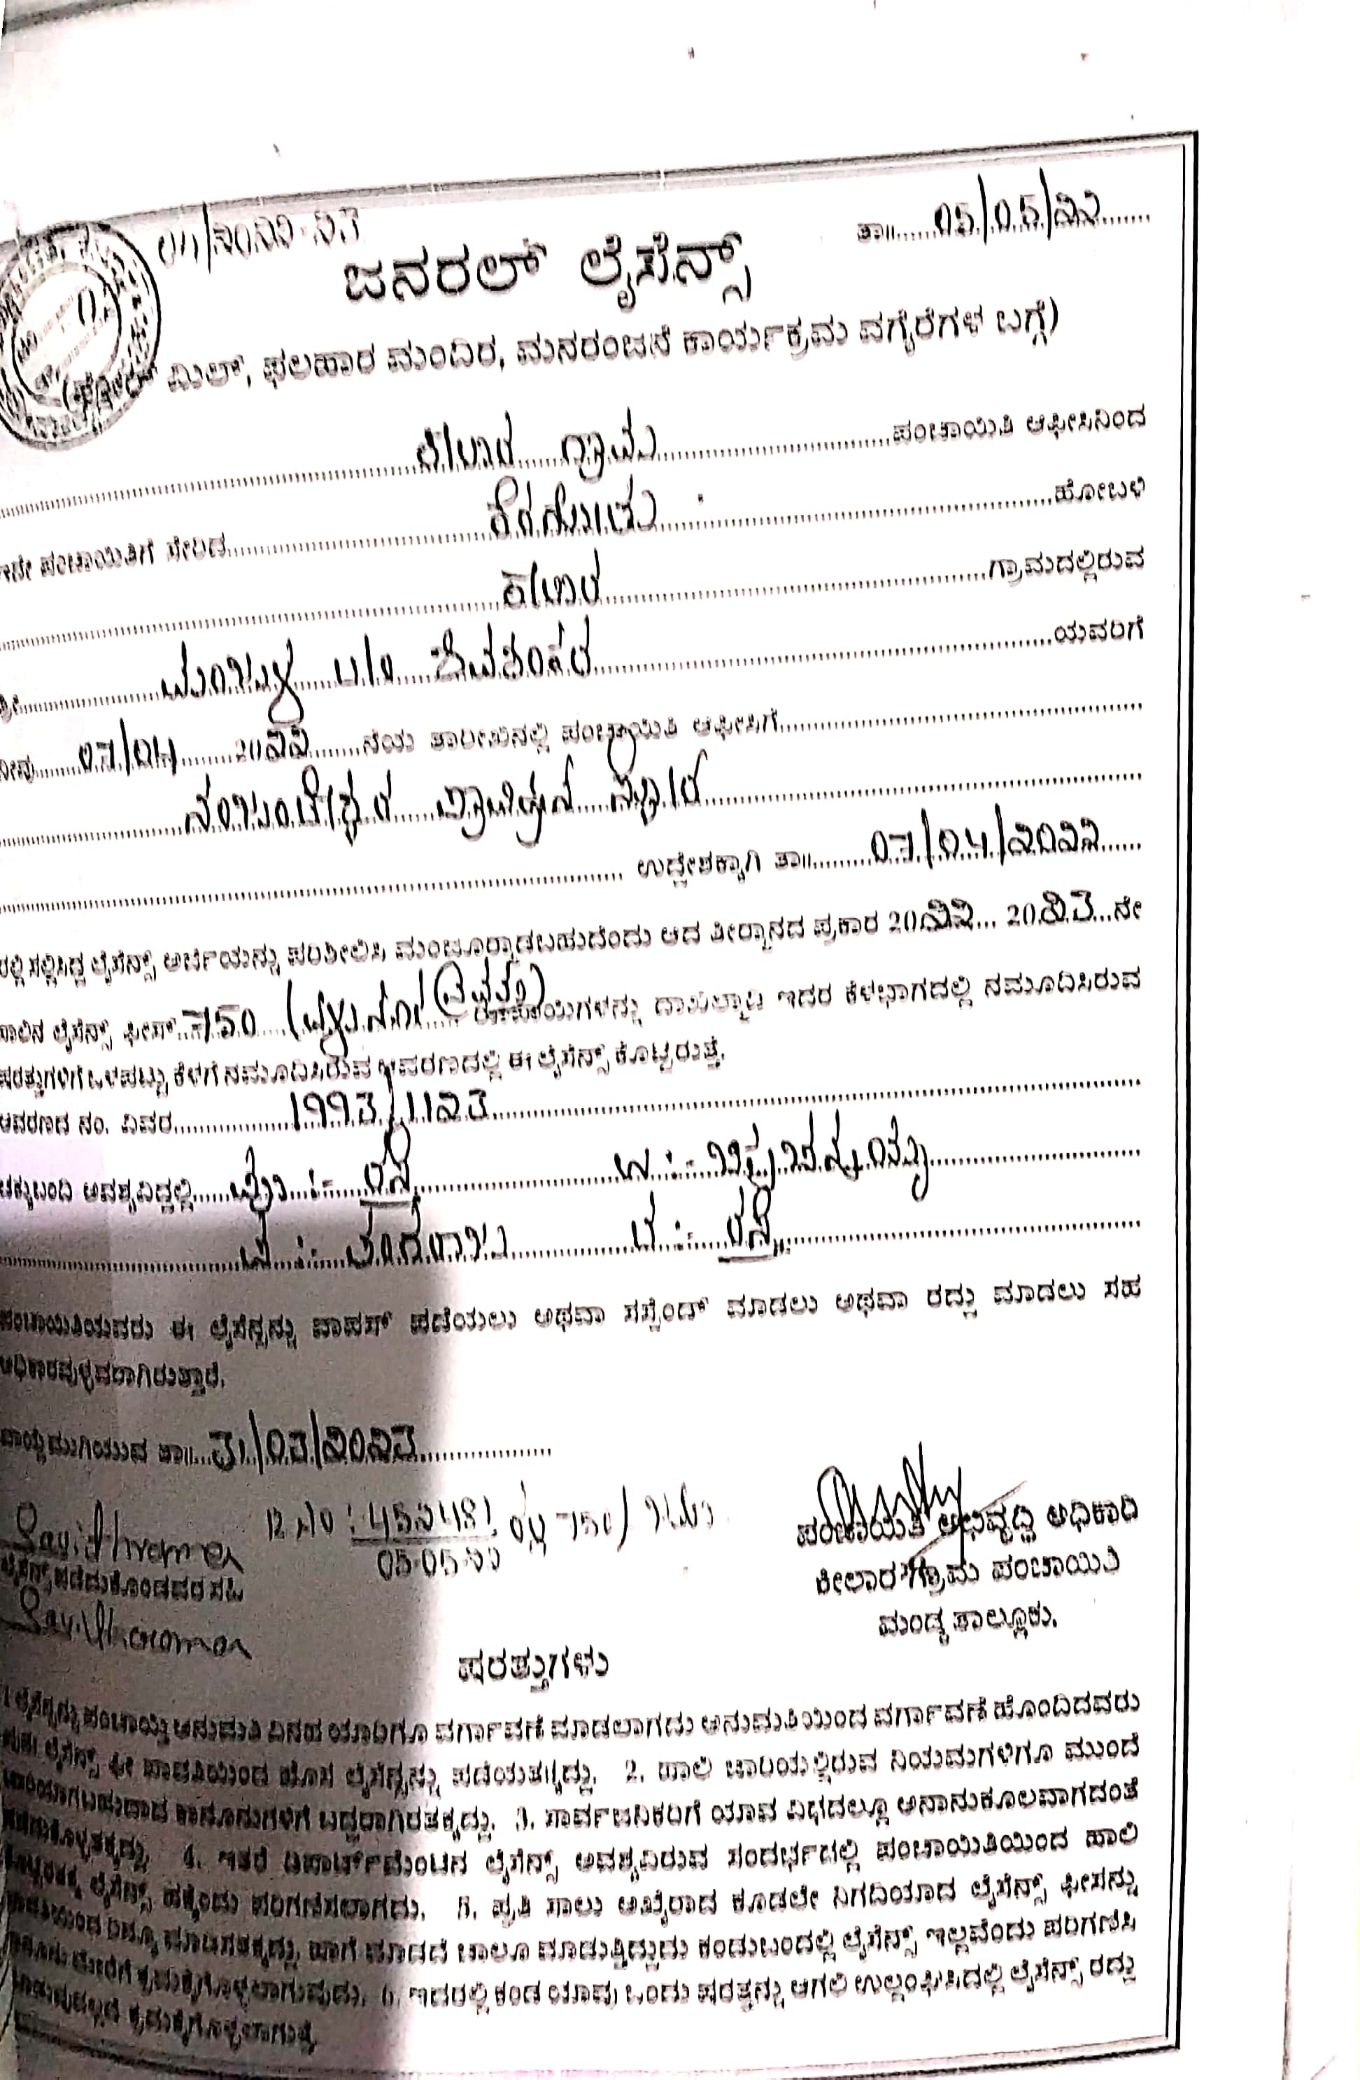 04/2022-23
ತಾ॥ 05/05/22
ಜನರಲ್ ಲೈಸೆನ್ಸ್
ಮಿಲ್, ಫಲಹಾರ ಮಂದಿರ, ಮನರಂಜನೆ ಕಾರ್ಯಕ್ರಮ ವಗೈರೆಗಳ ಬಗ್ಗೆ)
ಕೀಲಾರ ಗ್ರಾಮ ಪಂಚಾಯಿತಿ ಆಫೀಸಿನಿಂದ
ಇದೇ ಪಂಚಾಯಿತಿಗೆ ಸೇರಿದ ಕೆರಗೋಡು ಹೋಬಳಿ
ಕೀಲಾರ ಗ್ರಾಮದಲ್ಲಿರುವ
ಶ್ರೀ ಮಂಜುಳ ಶಿವಶಂಕರ ಯವರಿಗೆ
ನೀವು 07/04 2022 ನೆಯ ತಾರೀಖಿನಲ್ಲಿ ಪಂಚಾಯಿತಿ ಆಫೀಸಿಗೆ
ನಂಜುಂಡೇಶ್ವರ ಪ್ರಾವಿಜನ್ ಸ್ಟೋರ್
ಉದ್ದೇಶಕ್ಕಾಗಿ ತಾ॥ 07/04/2022
ರಲ್ಲಿ ಸಲ್ಲಿಸಿದ್ದ ಲೈಸೆನ್ಸ್ ಅರ್ಜಿಯನ್ನು ಪರಿಶೀಲಿಸಿ ಮಂಜೂರ್ಮಾಡಬಹುದೆಂದು ಆದ ತೀರ್ಮಾನದ ಪ್ರಕಾರ 2022 2023 ನೇ
ಸಾಲಿನ ಲೈಸೆನ್ಸ್ ಫೀಸ್ 750 ರೂಪಾಯಿಗಳನ್ನು ದಾಖಲ್ಮಾಡಿ ಇದರ ಕೆಳಭಾಗದಲ್ಲಿ ನಮೂದಿಸಿರುವ
ಷರತ್ತುಗಳಿಗೆ ಒಳಪಟ್ಟು ಕೆಳಗೆ ನಮೂದಿಸಿರುವ ಆವರಣದಲ್ಲಿ ಈ ಲೈಸೆನ್ಸ್ ಕೊಟ್ಟಿರುತ್ತೆ.
ಆವರಣದ ನಂ. ವಿವರ 1993/1123
ಚಕ್ಕುಬಂದಿ ಅವಶ್ಯವಿದ್ದಲ್ಲಿ ಪೂ :- ರಸ್ತೆ
:- ರಸ್ತೆ
ಪಂಚಾಯಿತಿಯವರು ಈ ಲೈಸೆನ್ಸನ್ನು ವಾಪಸ್ ಪಡೆಯಲು ಅಥವಾ ಸಸ್ಪೆಂಡ್ ಮಾಡಲು ಅಥವಾ ರದ್ದು ಮಾಡಲು ಸಹ
ಅಧಿಕಾರವುಳ್ಳವರಾಗಿರುತ್ತಾರೆ.
ವಾಯ್ದೆ ಮುಗಿಯುವ ತಾ॥ 31/03/2023
Savithramma
05-05-22
ಪಂಚಾಯಿತಿ ಅಭಿವೃದ್ಧಿ ಅಧಿಕಾರಿ
ಲೈಸೆನ್ಸ್ ಪಡೆದುಕೊಂಡವರ ಸಹಿ
ಕೀಲಾರ ಗ್ರಾಮ ಪಂಚಾಯಿತಿ
Savithramma
ಮಂಡ್ಯ ತಾಲ್ಲೂಕು.
ಷರತ್ತುಗಳು
1 ಲೈಸೆನ್ಸನ್ನು ಪಂಚಾಯ್ತಿ ಅನುಮತಿ ವಿನಹ ಯಾರಿಗೂ ವರ್ಗಾವಣೆ ಮಾಡಲಾಗದು ಅನುಮತಿಯಿಂದ ವರ್ಗಾವಣೆ ಹೊಂದಿದವರು
ಲೈಸೆನ್ಸ್ ಫೀ ಪಾವತಿಯಿಂದ ಹೊಸ ಲೈಸೆನ್ಸನ್ನು ಪಡೆಯತಕ್ಕದ್ದು. 2. ಹಾಲಿ ಜಾರಿಯಲ್ಲಿರುವ ನಿಯಮಗಳಿಗೂ ಮುಂದೆ
ಜಾರಿಯಾಗಬಹುದಾದ ಕಾನೂನುಗಳಿಗೆ ಬದ್ಧರಾಗಿರತಕ್ಕದ್ದು. 3. ಸಾರ್ವಜನಿಕರಿಗೆ ಯಾವ ವಿಧದಲ್ಲೂ ಅನಾನುಕೂಲವಾಗದಂತೆ
ನಡೆದುಕೊಳ್ಳತಕ್ಕದ್ದು. 4. ಇತರೆ ಡಿಪಾರ್ಟ್‌ಮೆಂಟಿನ ಲೈಸೆನ್ಸ್ ಅವಶ್ಯವಿರುವ ಸಂದರ್ಭದಲ್ಲಿ ಪಂಚಾಯಿತಿಯಿಂದ ಹಾಲಿ
ಲೈಸೆನ್ಸ್ ಹಕ್ಕೆಂದು ಪರಿಗಣಿಸಲಾಗದು. 5. ಪ್ರತಿ ಸಾಲು ಆಖೈರಾದ ಕೂಡಲೇ ನಿಗದಿಯಾದ ಲೈಸೆನ್ಸ್ ಫೀಸನ್ನು
ಮಾಡತಕ್ಕದ್ದು. ಹಾಗೆ ಮಾಡದೆ ಚಾಲೂ ಮಾಡುತ್ತಿದ್ದುದು ಕಂಡುಬಂದಲ್ಲಿ ಲೈಸೆನ್ಸ್ ಇಲ್ಲವೆಂದು ಪರಿಗಣಿಸಿ
ಮೇರೆಗೆ ಕ್ರಮಕೈಗೊಳ್ಳಲಾಗುವುದು. 6. ಇದರಲ್ಲಿ ಕಂಡ ಯಾವು ಒಂದು ಷರತ್ತನ್ನು ಆಗಲಿ ಉಲ್ಲಂಘಿಸಿದಲ್ಲಿ ಲೈಸೆನ್ಸ್ ರದ್ದು
ಕ್ರಮಕೈಗೊಳ್ಳಲಾಗುತ್ತೆ.